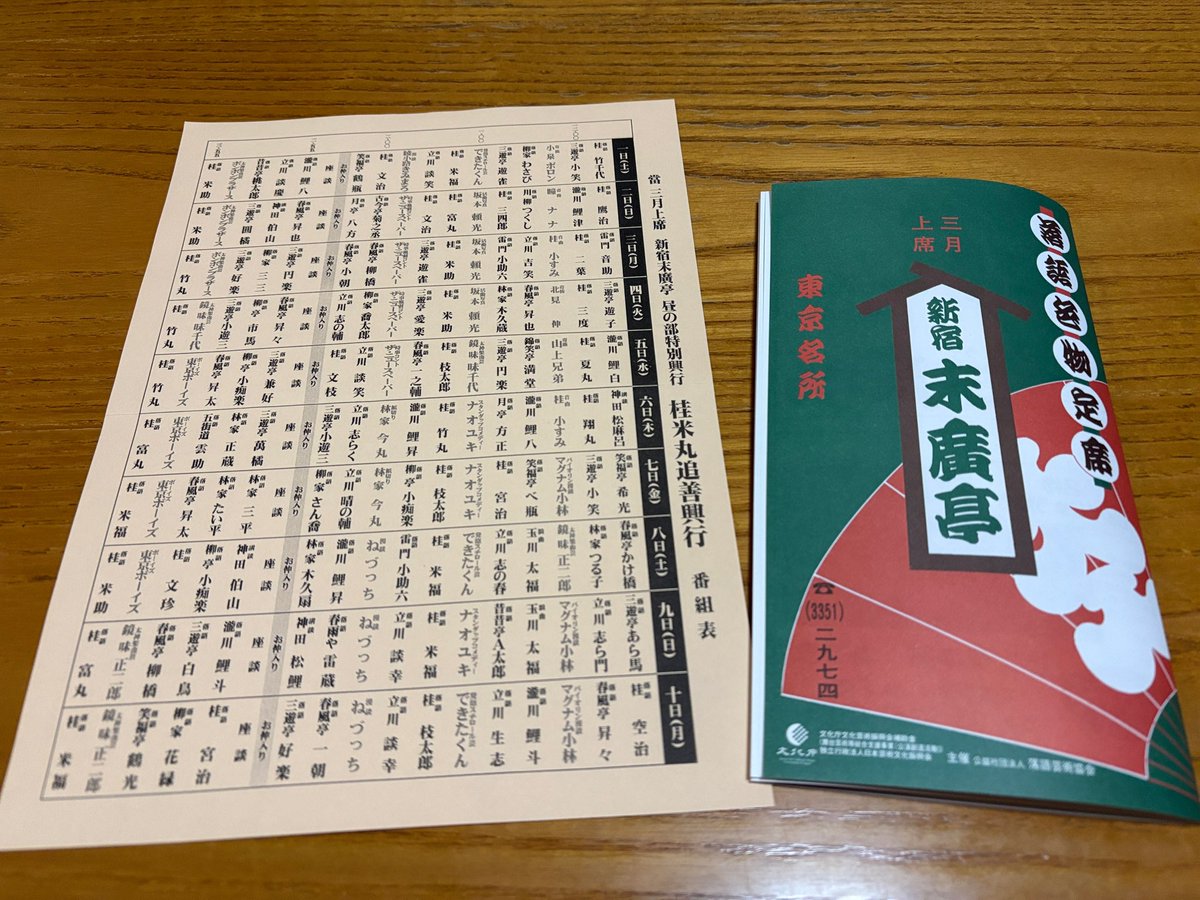 當 三月上席 新宿末廣亭 昼の部特別興行 桂米丸追善興行 番組表
一日(土)
桂 竹千代
三遊亭小笑
小泉ポロン
柳家わさび
三遊亭遊雀
できたくん
桂 米福
立川談笑
綾小路きみまろ
桂 文治
笑福亭鶴瓶
お仲入り
座談
瀧川鯉八
立川談慶
昔昔亭桃太郎
ボンボンブラザース
桂 米助
二日(日)
桂 鷹治
瀧川鯉津
瞳 ナナ
川柳つくし
桂 二四郎
坂本頼光
桂 富丸
桂 文治
ザ・ニュースペーパー
古今亭菊之丞
月亭八方
お仲入り
座談
春風亭昇也
神田伯山
三遊亭圓橘
ボンボンブラザース
桂 米助
三日(月)
雷門音助
桂 二葉
桂 小すみ
立川吉笑
雷門小助六
坂本頼光
桂 米助
三遊亭遊雀
ザ・ニュースペーパー
春風亭柳橋
春風亭小朝
お仲入り
座談
三遊亭円楽
柳家三三
三遊亭好楽
ボンボンブラザース
桂 竹丸
四日(火)
三遊亭遊子
桂 三度
北見 伸
春風亭昇也
林家木久蔵
坂本頼光
桂 米助
三遊亭愛楽
ザ・ニュースペーパー
柳家喬太郎
立川志の輔
お仲入り
座談
春風亭昇々
柳亭市馬
三遊亭小遊三
鏡味味千代
桂 竹丸
五日(水)
瀧川鯉白
桂 夏丸
山上兄弟
錦笑亭満堂
三遊亭円楽
鏡味味千代
桂 枝太郎
春風亭一之輔
ザ・ニュースペーパー
立川談笑
桂 文枝
お仲入り
座談
三遊亭兼好
柳亭小痴楽
春風亭昇太
東京ボーイズ
桂 竹丸
六日(木)
神田松麻呂
桂 翔丸
桂 小すみ
瀧川鯉八
月亭方正
ナオユキ
桂 竹丸
瀧川鯉昇
林家今丸
立川志らく
三遊亭小遊三
お仲入り
座談
三遊亭萬橘
林家正蔵
五街道雲助
東京ボーイズ
桂 富丸
七日(金)
笑福亭希光
三遊亭小笑
マグナム小林
笑福亭べ瓶
桂 宮治
ナオユキ
桂 枝太郎
柳亭小痴楽
林家今丸
立川晴の輔
柳家さん喬
お仲入り
座談
林家三平
林家たい平
春風亭昇太
東京ボーイズ
桂 米福
八日(土)
春風亭かけ橋
林家つる子
鏡味正二郎
玉川太福
立川志の春
できたくん
桂 米福
雷門小助六
ねづっち
瀧川鯉昇
林家木久扇
お仲入り
座談
神田伯山
柳亭小痴楽
桂 文珍
東京ボーイズ
桂 米助
九日(日)
三遊亭あら馬
立川志ら門
マグナム小林
玉川太福
昔昔亭A太郎
ナオユキ
桂 米福
立川談幸
ねづっち
春雨や雷蔵
神田松鯉
お仲入り
座談
瀧川鯉斗
三遊亭白鳥
春風亭柳橋
鏡味正二郎
桂 富丸
十日(月)
桂 空治
春風亭昇々
マグナム小林
瀧川鯉斗
立川生志
できたくん
桂 枝太郎
立川談幸
ねづっち
春風亭一朝
三遊亭好楽
お仲入り
座談
桂 宮治
柳家花緑
笑福亭鶴光
鏡味正二郎
桂 米福
落語色物定席
三月上席
新宿 末廣亭
東京名所
☎(3351)二九七四
文化庁
文化庁文化芸術振興費補助金
独立行政法人日本芸術文化振興会
主催 公益社団法人 落語芸術協会